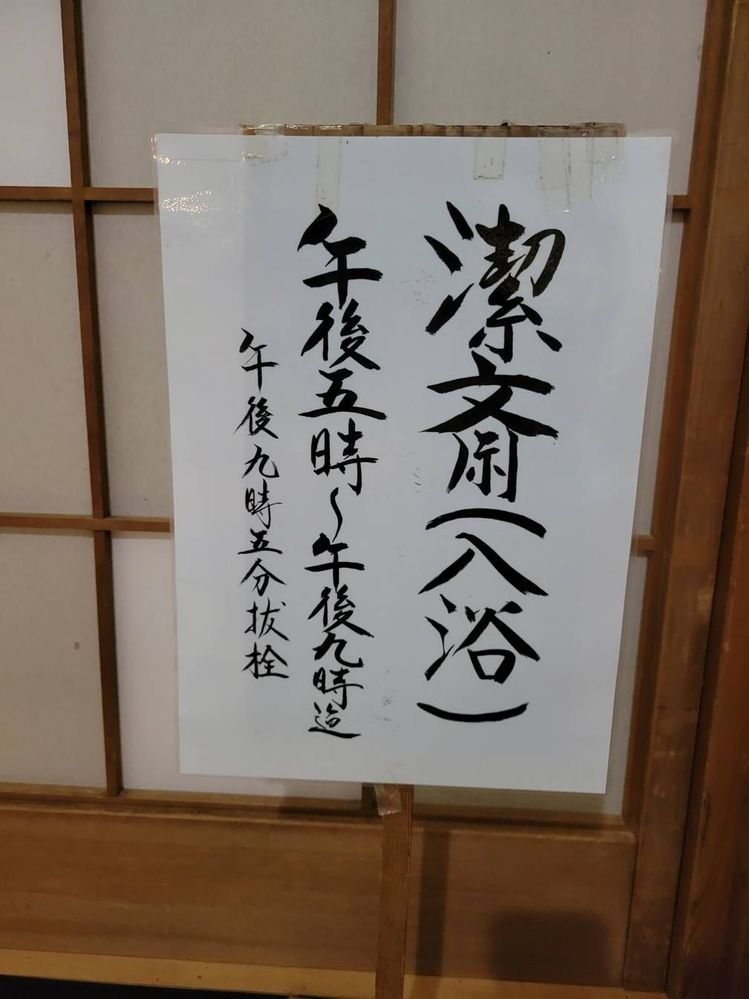 潔斎（入浴）
午後五時〜午後九時迄
午後九時五分抜栓